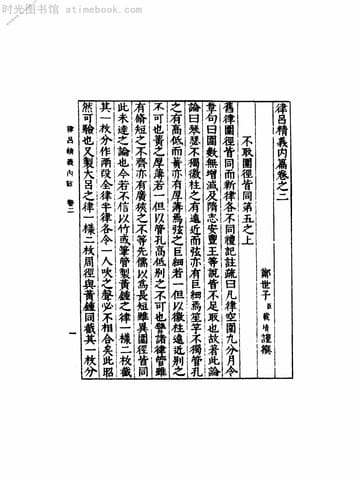 时光图书馆 - atimebook.com
律呂精義內篇卷之二
鄭世子臣載堉謹撰
不取圍徑皆同第五之上
舊律圍徑皆同而新律各不同禮記註疏曰凡律空圍九分月令
章句曰圍數無增減及隋志安豐王等說皆不足取也故著此論
論曰琴瑟不獨徽柱之有遠近而弦亦有巨細焉笙竽不獨管孔
之有高低而簧亦有厚薄焉弦之巨細若一但以徽柱遠近別之
不可也簧之厚薄若一但以管孔高低別之不可也譬諸律管雖
有脩短之不齊亦有廣狹之不等先儒以為長短雖異圍徑皆同
此未達之論也今若不信以竹或筆管製黃鐘之律一樣二枚截
其一枚分作兩段全律半律各令一人吹之聲必不相合矣此昭
然可驗也又製大呂之律一樣二枚周徑與黃鐘同截其一枚分
律呂精義內篇 卷二
一